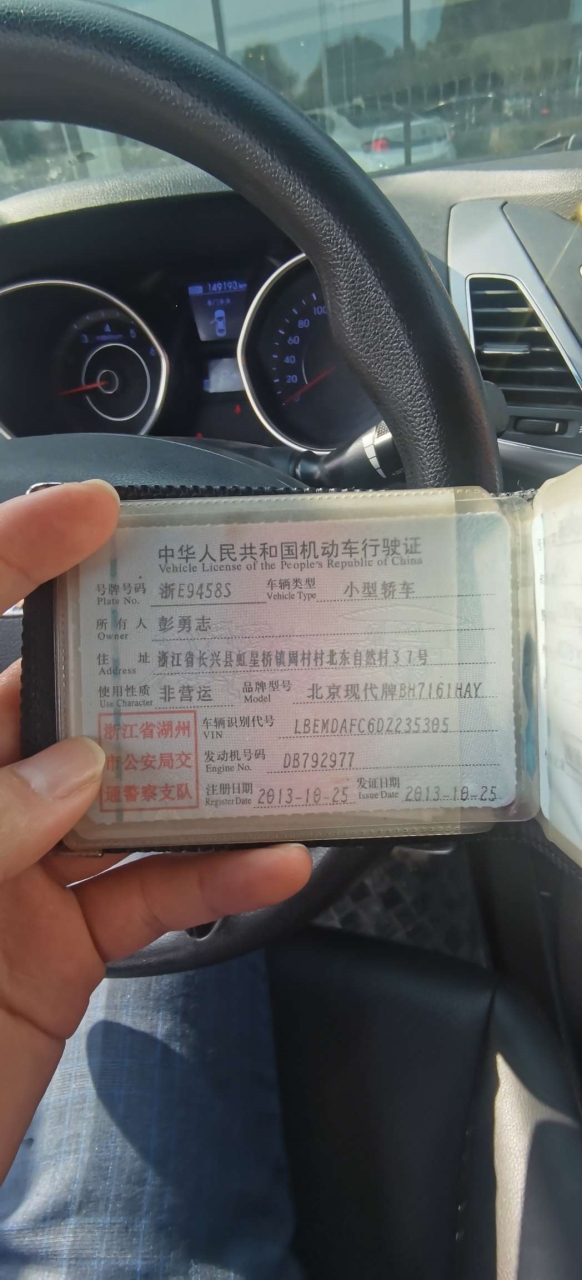 149193 km
3 4 5 6
100
80
60
40
20
中华人民共和国机动车行驶证
Vehicle License of the People's Republic of China
号牌号码 浙E9458S 车辆类型 小型轿车
Plate No. Vehicle Type
所有人 彭勇志
Owner
住址 浙江省长兴县虹星桥镇周村村北东自然村37号
Address
使用性质 非营运 品牌型号 北京现代牌BH7161HAY
Use Character Model
浙江省湖州
市公安局交
通警察支队
车辆识别代号 LBEMDAFC6DZ235305
VIN
发动机号码 DB792977
Engine No.
注册日期 2013-10-25 发证日期 2013-10-25
Register Date Issue Date